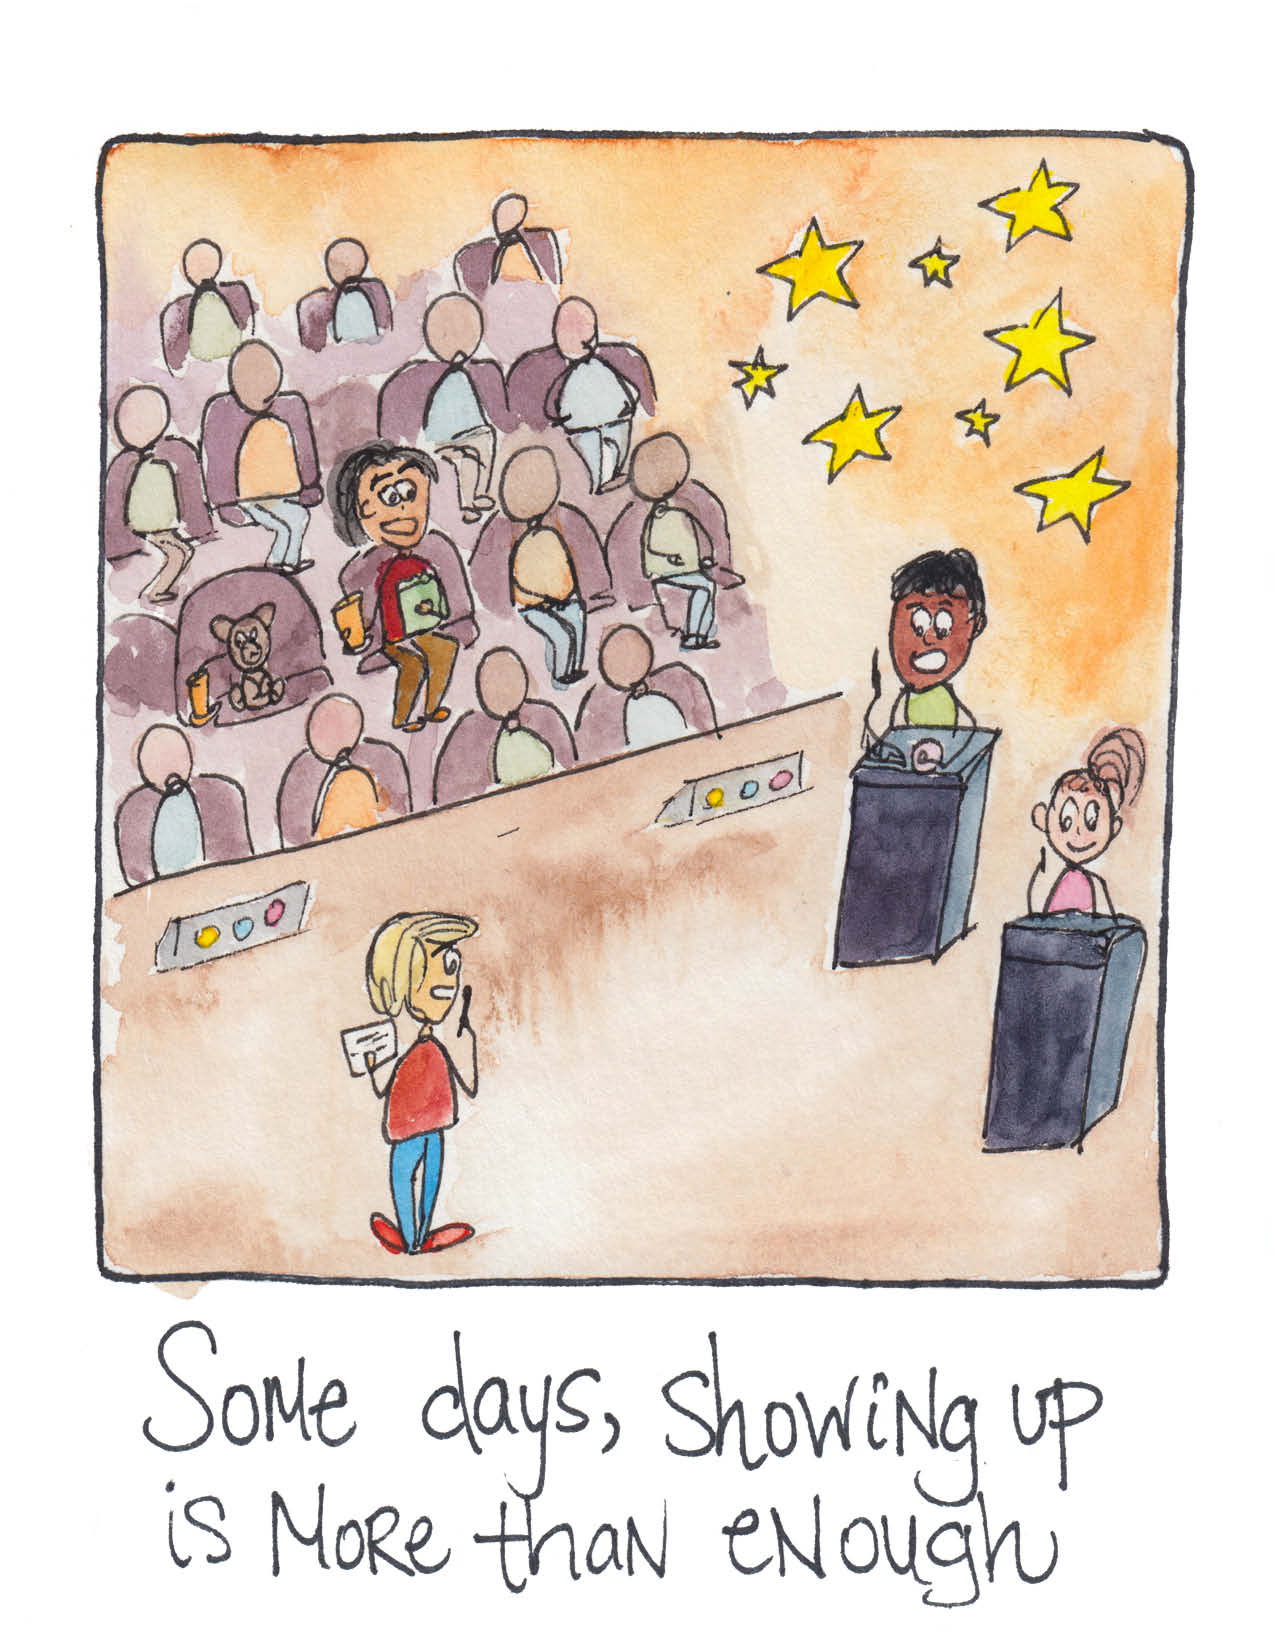 Some days, showing up
is more than enough